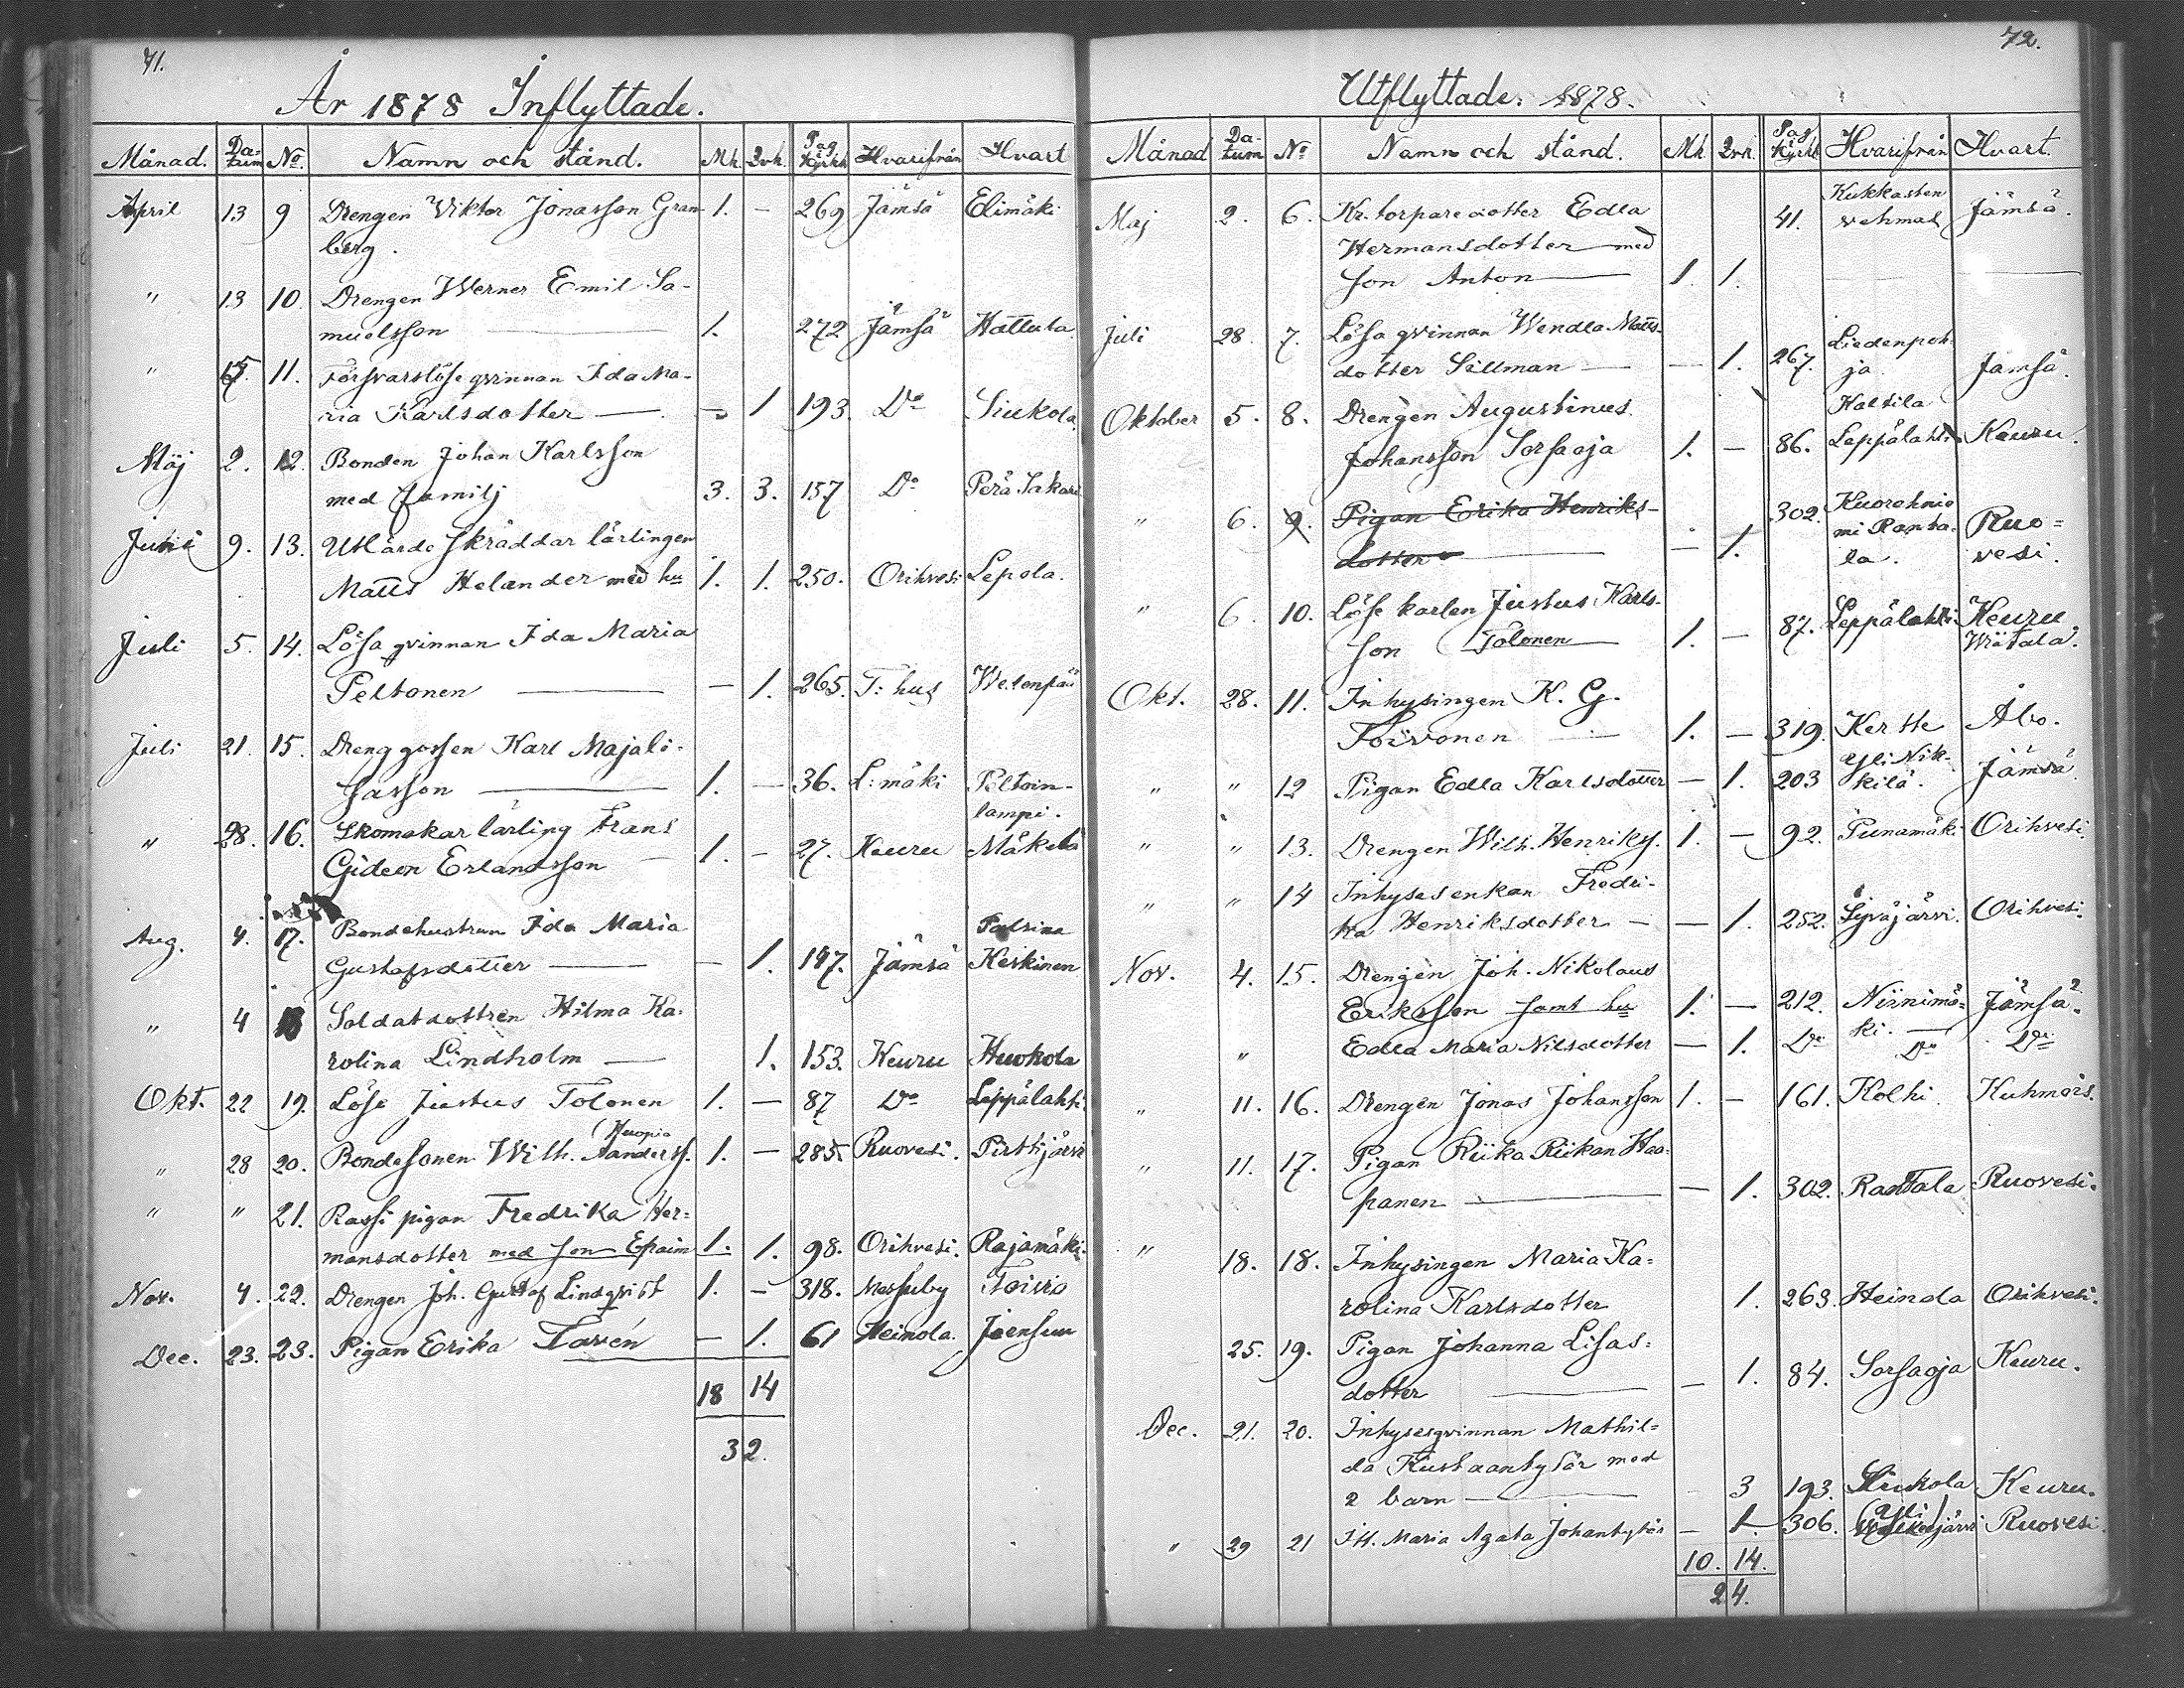 71.
År 1878 Inflyttade.
Månad. Da-tum No. Namn och stånd. Mk. Qvk. Pag. Kyrkb. Hvarifrån Hvart
April 13 9 Drengen Viktor Jonasson Gran- 1. - 269 Jämsä Elimäki
berg.
" 13 10 Drengen Werner Emil Sa-
muelsson 1. 272 Jämsä Hattula
" 15. 11. Försvarslösa qvinnan Ida Ma-
ria Karlsdotter - 1 193. Do Siukola
Maj 2. 12. Bonden Johan Karlsson
med familj 3. 3. 157 Do Perä Sakari
Juni 9. 13. Utlärde skräddar lärlingen
Matts Helander med hu 1. 1. 250. Orihvesi Lepola.
Juli 5. 14. Lösa qvinnan Ida Maria
Peltonen - 1. 265. T: hus
Juli 21. 15. Dreng gossen Karl Majali-
sasson 1. - 36. L: mäki Peltoin-
lampi.
" 28. 16. Skomakar lärling Frans
Gideon Erlandsson 1. - 27. Keuru Mäkelä
Aug. 4. 17. Bondehustrun Ida Maria
Gustafsdotter - 1. 147. Jämsä Keskinen
" 4 18 Soldatdottren Hilma Ka-
rolina Lindholm 1. 153. Keuru Huokola
Okt. 22 19. Löse Justus Tolonen 1. - 87 Do Leppälahti
" 28 20. Bondesonen Wilh. Aanderss. 1. - 285 Ruovesi. Pirttijärvi
" " 21. Rassi pigan Fredrika Her-
mansdotter med son Epraim 1. 1. 98. Orihvesi. Rajamäki.
Nov. 4. 22. Drengen Joh. Gustaf Lindqvist 1. - 318. Messuby Toivio
Dec. 23. 23. Pigan Erika Tarvén - 1. 61 Heinola. Joensuu
18 14
32.
72.
Utflyttade. 1878.
Månad Da-tum No Namn och stånd. Mk Qvk. Pag Kyrkb Hvarifrån Hvart.
Maj 2. 6. Kr. torparedotter Edla 41. Kukkasten
vehmas Jämsä.
Hermansdotter med
son Anton 1. 1.
Juli 28. 7. Lösa qvinnan Wendla Matts-
dotter Sillman - 1. 267. Liedenpoh-
ja. Jämsä.
Oktober 5. 8. Drengen Augustinus Haltila
Johansson Sorsaoja 1. - 86. Leppälahti Keuru.
" 6. 9. Pigan Erika Henriks-
dotter - 1. 302. Kuorehnie
mi Ranta-
la. Ruo=
vesi.
" 6. 10. Löse karlen Justus Karls-
son Tolonen 1. - 87. Leppälahti Keuru
Wiitala.
Okt. 28. 11. Inhysingen K. G.
Toivonen 1. - 319. Kertte Åbo.
" " 12 Pigan Edla Karlsdotter - 1. 203 Yli Nik-
kilä. Jämsä.
" " 13. Drengen Wilh. Henrikss. 1. - 92. Punamäki Orihvesi.
" " 14 Inhysesenkan Fredri-
ka Henriksdotter - 1. 252. Syväjärvi. Orihvesi.
Nov. 4. 15. Drengen Joh. Nikolaus
Eriksson samt hu 1. - 212. Niinimä=
ki. Jämsä.
" Edla Maria Nilsdotter - 1. Do Do Do
" 11. 16. Drengen Jonas Johansson 1. - 161. Kolhi. Kuhmois.
" 11. 17. Pigan Riika Riikan Haa-
panen - 1. 302. Rantala Ruovesi.
" 18. 18. Inhysingen Maria Ka=
rolina Karlsdotter 1. 263. Heinola Orihvesi.
25. 19. Pigan Johanna Lisas=
dotter - 1. 84. Sorsaoja Keuru.
Dec. 21. 20. Inhysesqvinnan Mathil=
da Kustaantytär med
2 barn 3 193. Siukola Keuru.
" 29 21 I H. Maria Agata Johantytär - 1. 306. Ruovesi.
10. 14.
24.